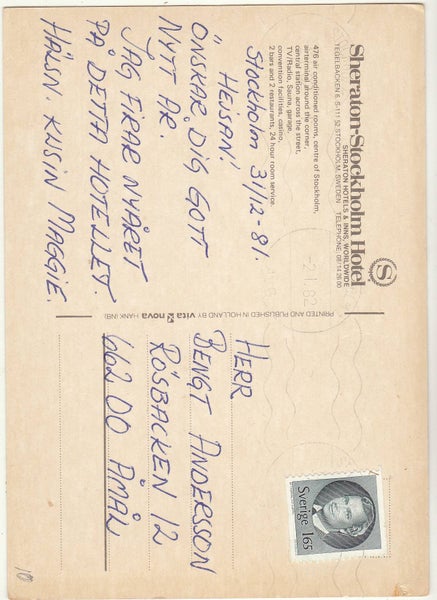 Sheraton-Stockholm Hotel
SHERATON HOTELS & INNS, WORLDWIDE
TEGELBACKEN 6, S-111 52 STOCKHOLM, SWEDEN TELEPHONE 08-14 26 00
476 air conditioned rooms, centre of Stockholm,
airterminal around the corner,
central station across the street,
TV/Radio, Sauna, garage,
convention facilities, casino,
2 bars and 2 restaurants, 24 hour room service.
Stockholm 31/12-81.
HEJSAN!
ÖNSKAR DIG GOTT
NYTT ÅR.
JAG FIRAR NYÅRET
PÅ DETTA HOTELLET.
HÄLSN. KUSIN MAGGIE.
PRINTED AND PUBLISHED IN HOLLAND BY vita nova HANK (NB)
-2.1.82
Sverige 165
HERR
BENGT ANDERSSON
RÖSBACKEN 12
662 00 ÅMÅL
10